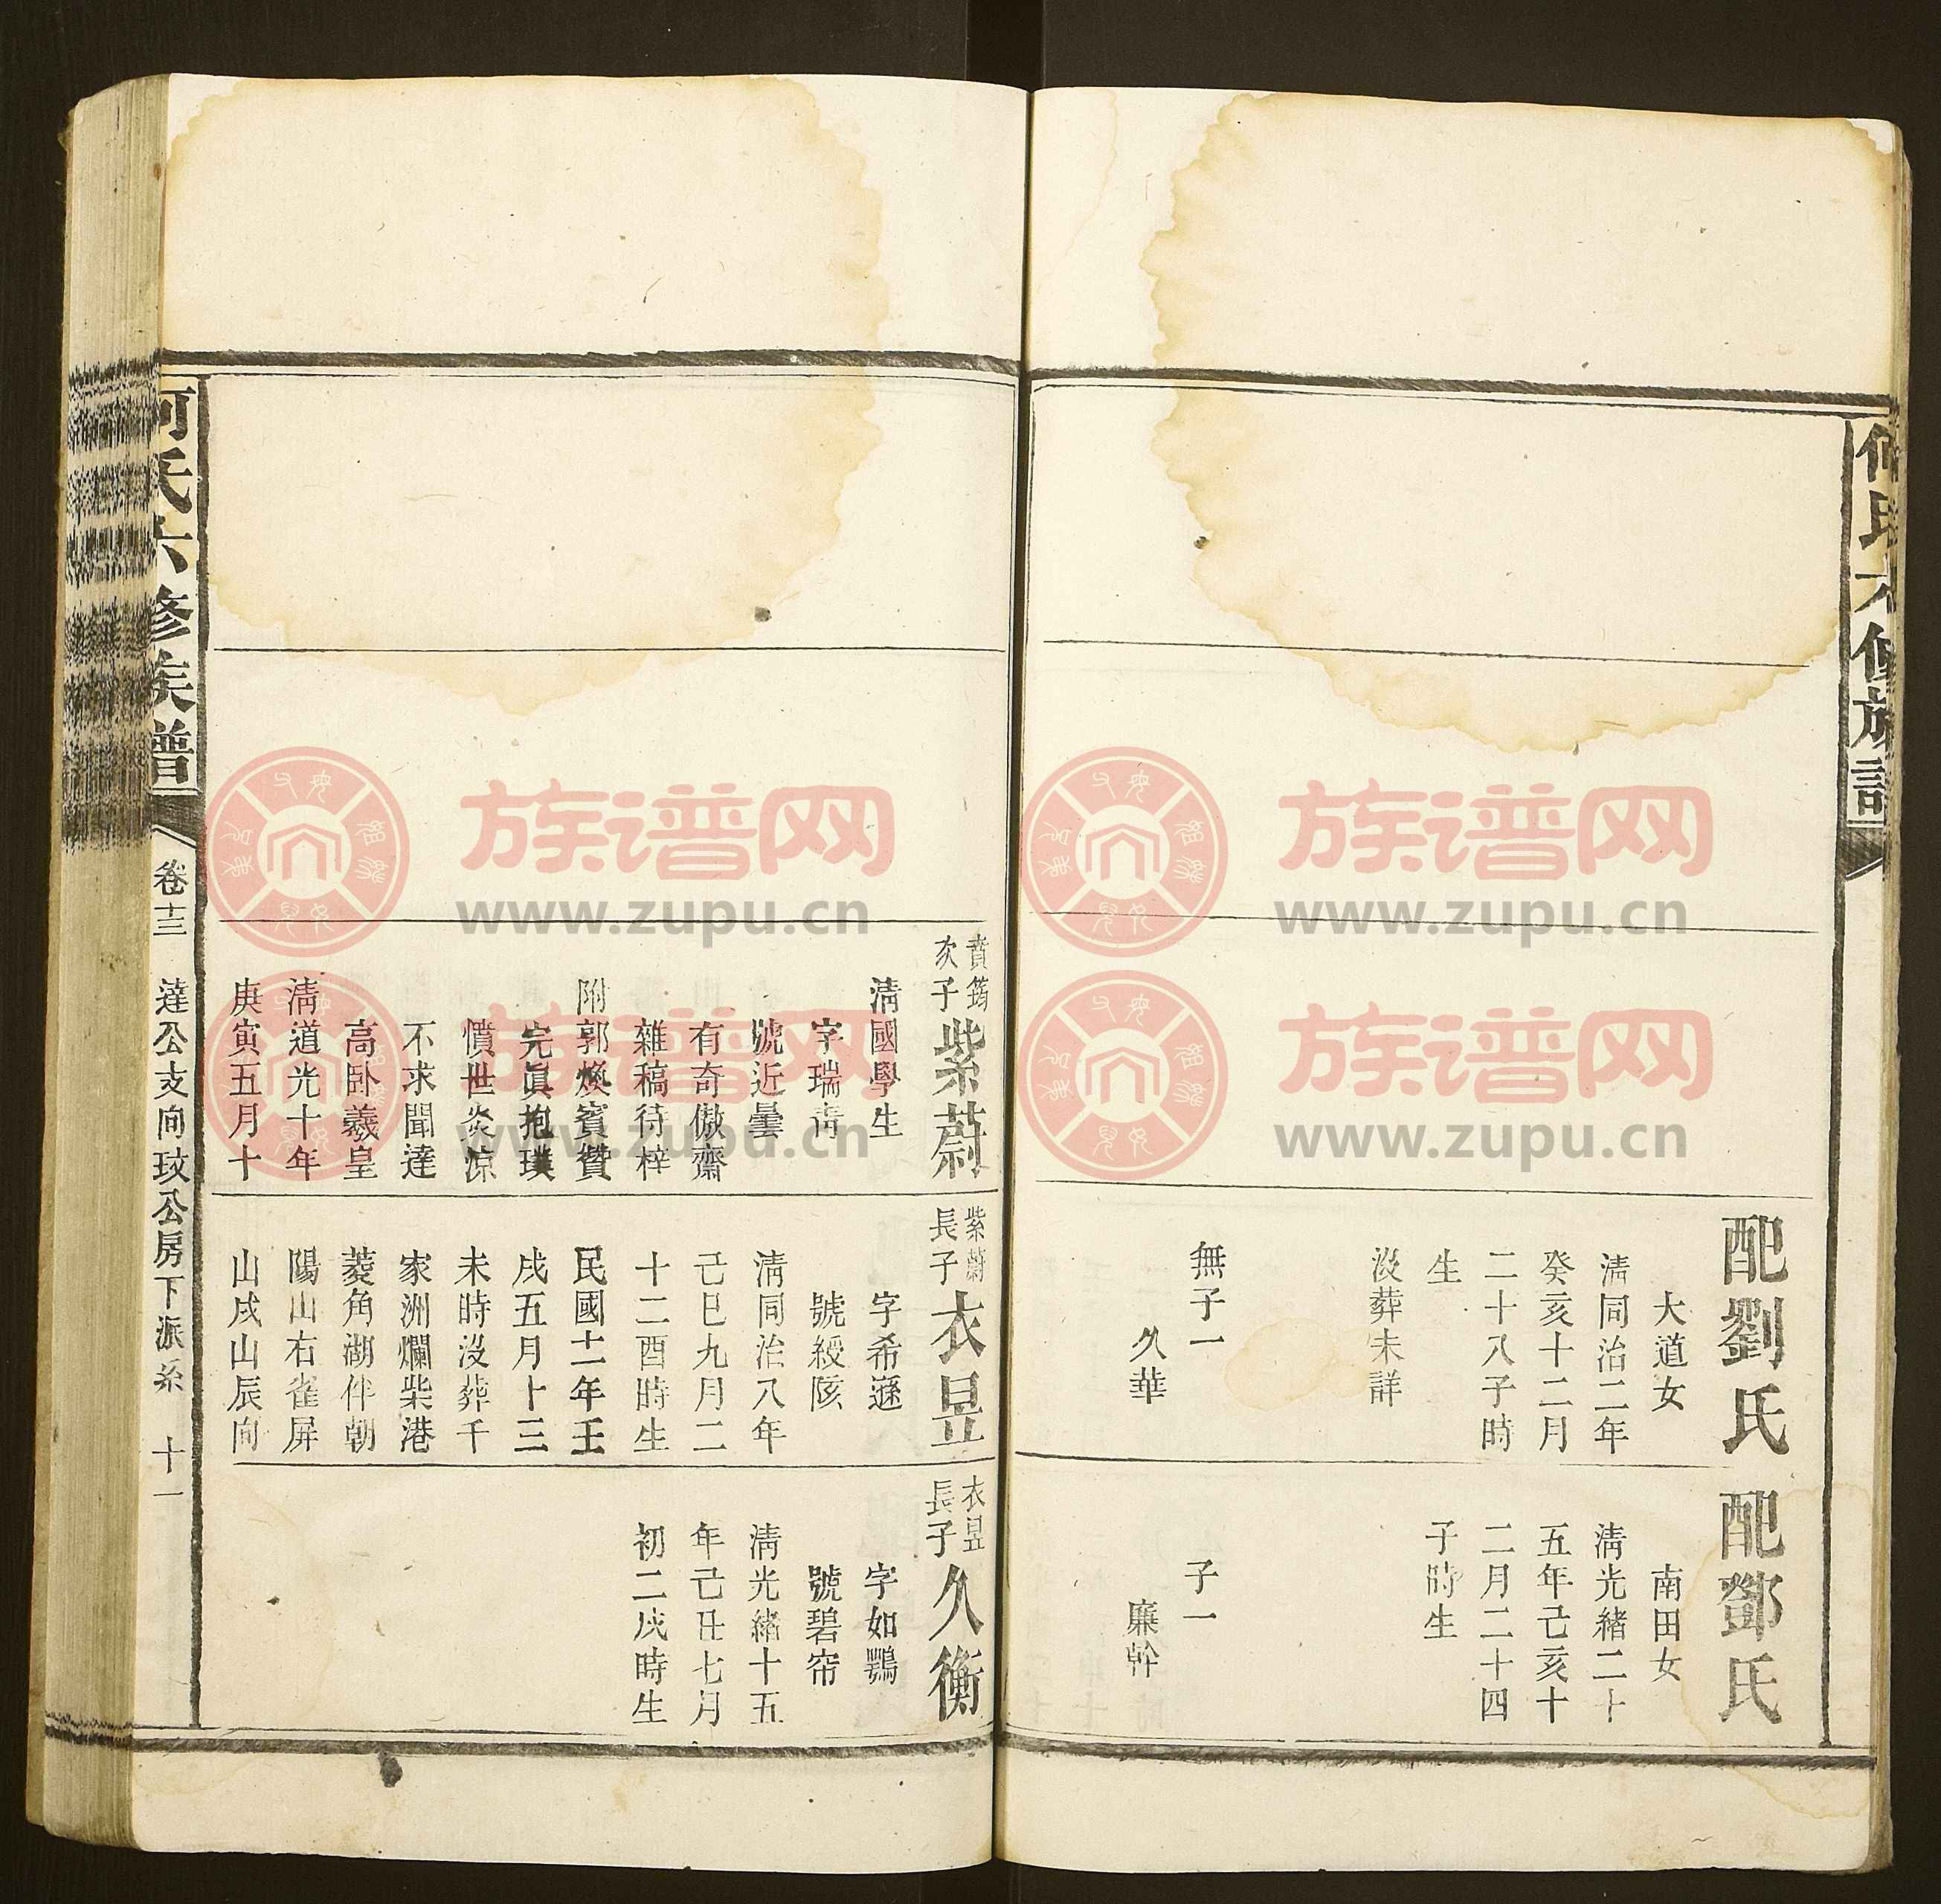 何氏六修族譜
配劉氏
大道女
清同治二年
癸亥十二月
二十八子時
生
没葬未詳
無子一
久華
配鄧氏
南田女
清光緒二十
五年己亥十
二月二十四
子時生
子一
廉幹
賁筠
次子
紫蔚
清國學生
字瑞靑
號近曇
有奇傲齋
雜稿待梓
附郭煥賓贊
完眞抱璞
憤世炎凉
不求聞達
高卧羲皇
清道光十年
庚寅五月十
紫蔚
長子
衣昱
字希遜
號綬陔
清同治八年
己巳九月二
十二酉時生
民國十一年壬
戌五月十三
未時没葬千
家洲爛柴港
菱角湖伴朝
陽山右雀屏
山戌山辰向
衣昱
長子
久衡
字如鶚
號碧帘
清光緒十五
年己丑七月
初二戌時生
何氏六修族譜
卷十三
達公支向玟公房下派系
十一
族谱网
www.zupu.cn
族谱网
www.zupu.cn
族谱网
www.zupu.cn
族谱网
www.zupu.cn